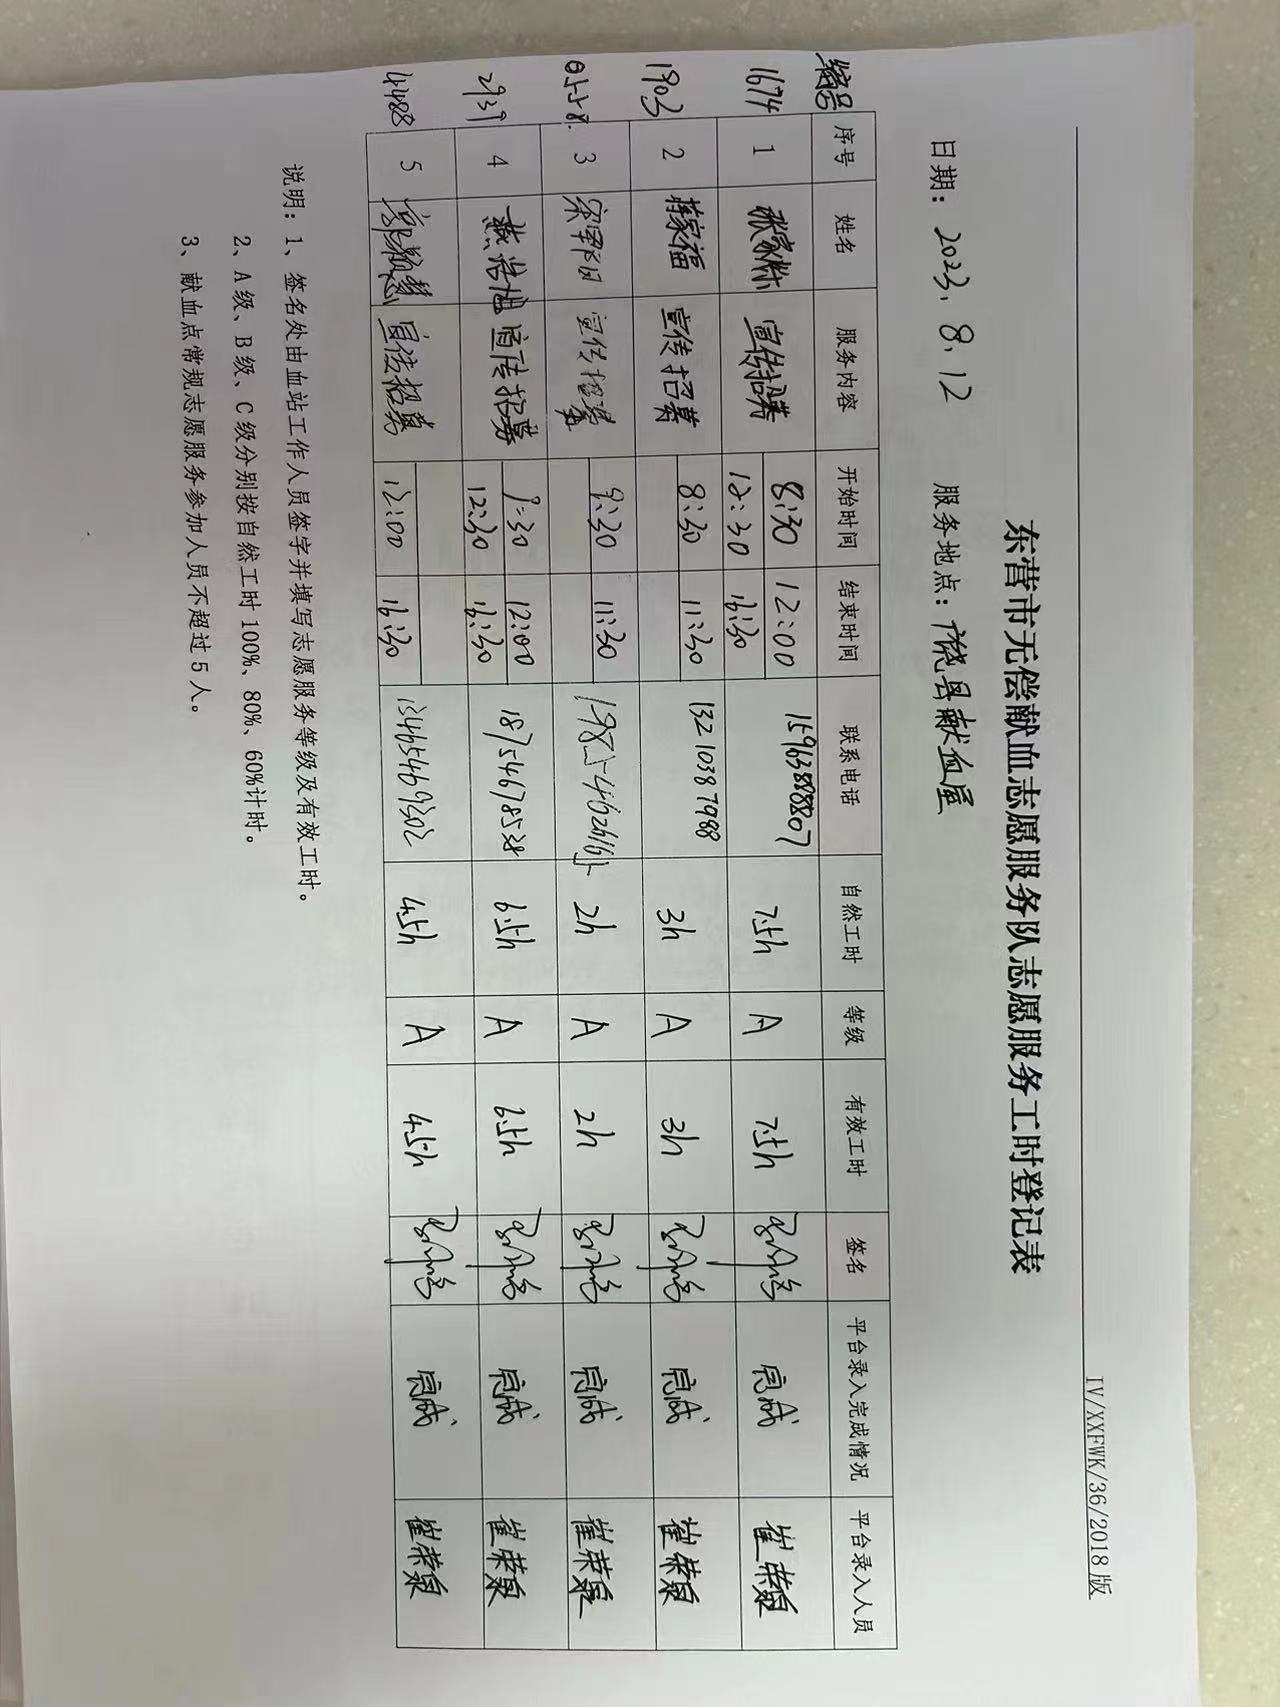 IV/XXFWK/36/2018版
东营市无偿献血志愿服务队志愿服务工时登记表
日期：2023.8.12 服务地点：饶县献血屋
编号 序号 姓名 服务内容 开始时间 结束时间 联系电话 自然工时 等级 有效工时 签名 平台录入完成情况 平台录入人员
1674 1 张家栋 宣传招募 8:30 12:00 15963888807 7.5h A 7.5h 完成 崔荣泉
12:30 16:30
1903 2 蒋家福 宣传招募 8:30 11:30 13210387988 3h A 3h 完成 崔荣泉
0558 3 宣传招募 9:30 11:30 2h A 2h 完成 崔荣泉
2939 4 燕 宣传招募 9:30 12:00 18754678538 6.5h A 6.5h 完成 崔荣泉
12:30 16:30
4488 5 郭颖慧 宣传招募 12:00 16:30 13465469302 4.5h A 4.5h 完成 崔荣泉
说明：1、签名处由血站工作人员签字并填写志愿服务等级及有效工时。
2、A级、B级、C级分别按自然工时100%、80%、60%计时。
3、献血点常规志愿服务参加人员不超过5人。